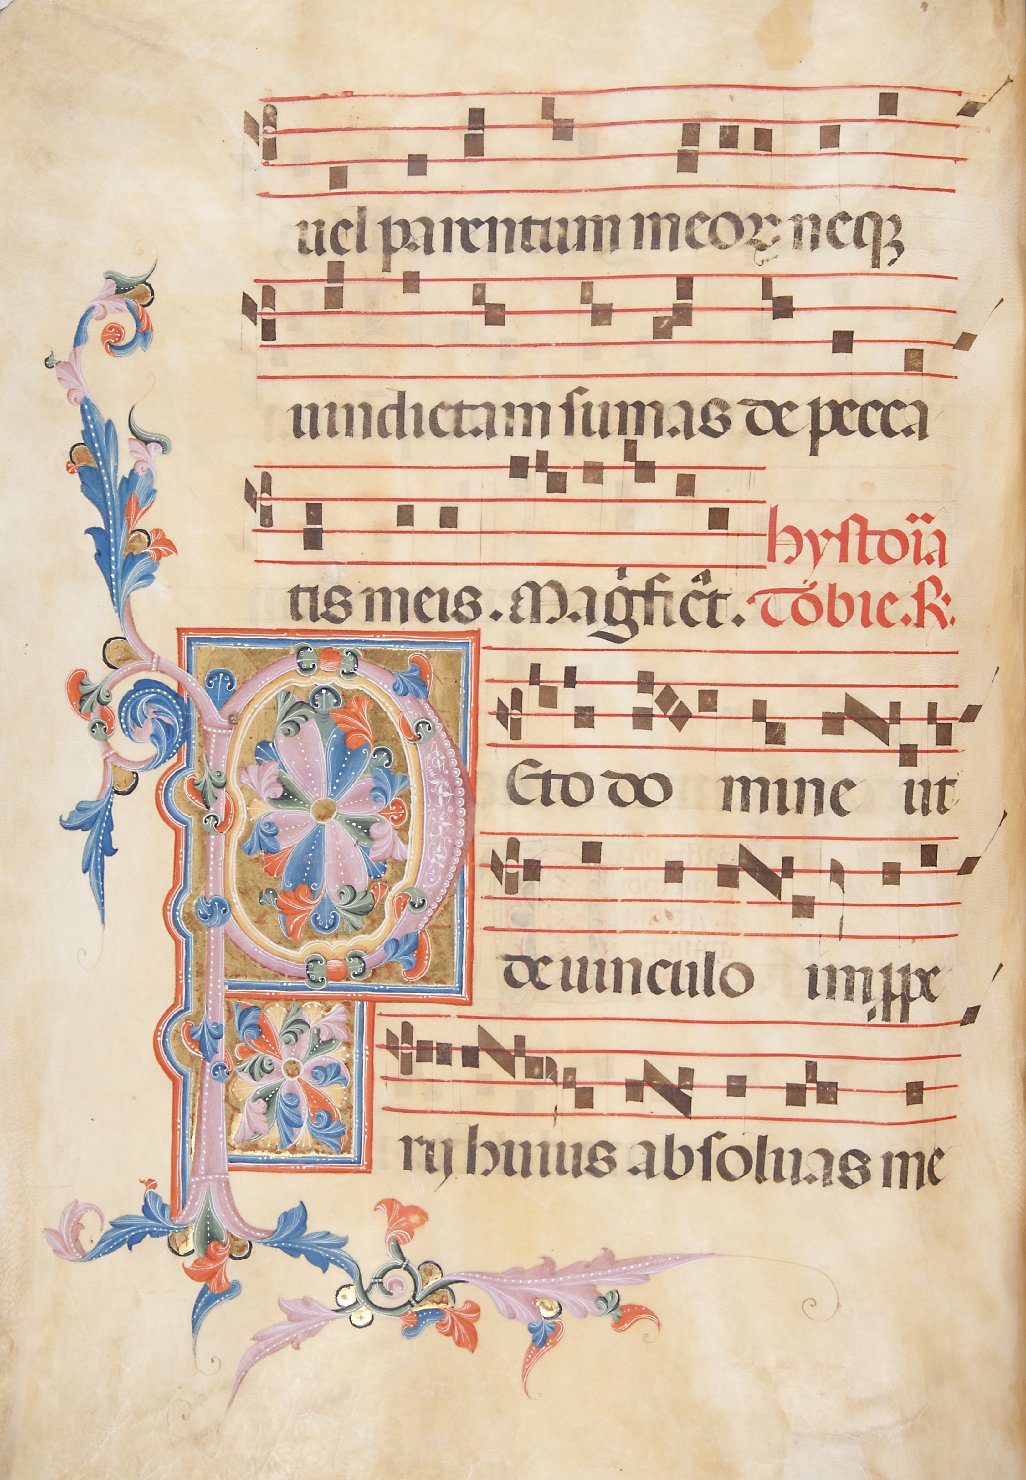 uel parentum meoꝝ neqꝫ
uindictam sumas de pecca
tis meis. Mag̓fic̄t. hystoria
Tobie. ℟.
Peto do mine ut
de uinculo imꝓpe
rij huius absoluas me